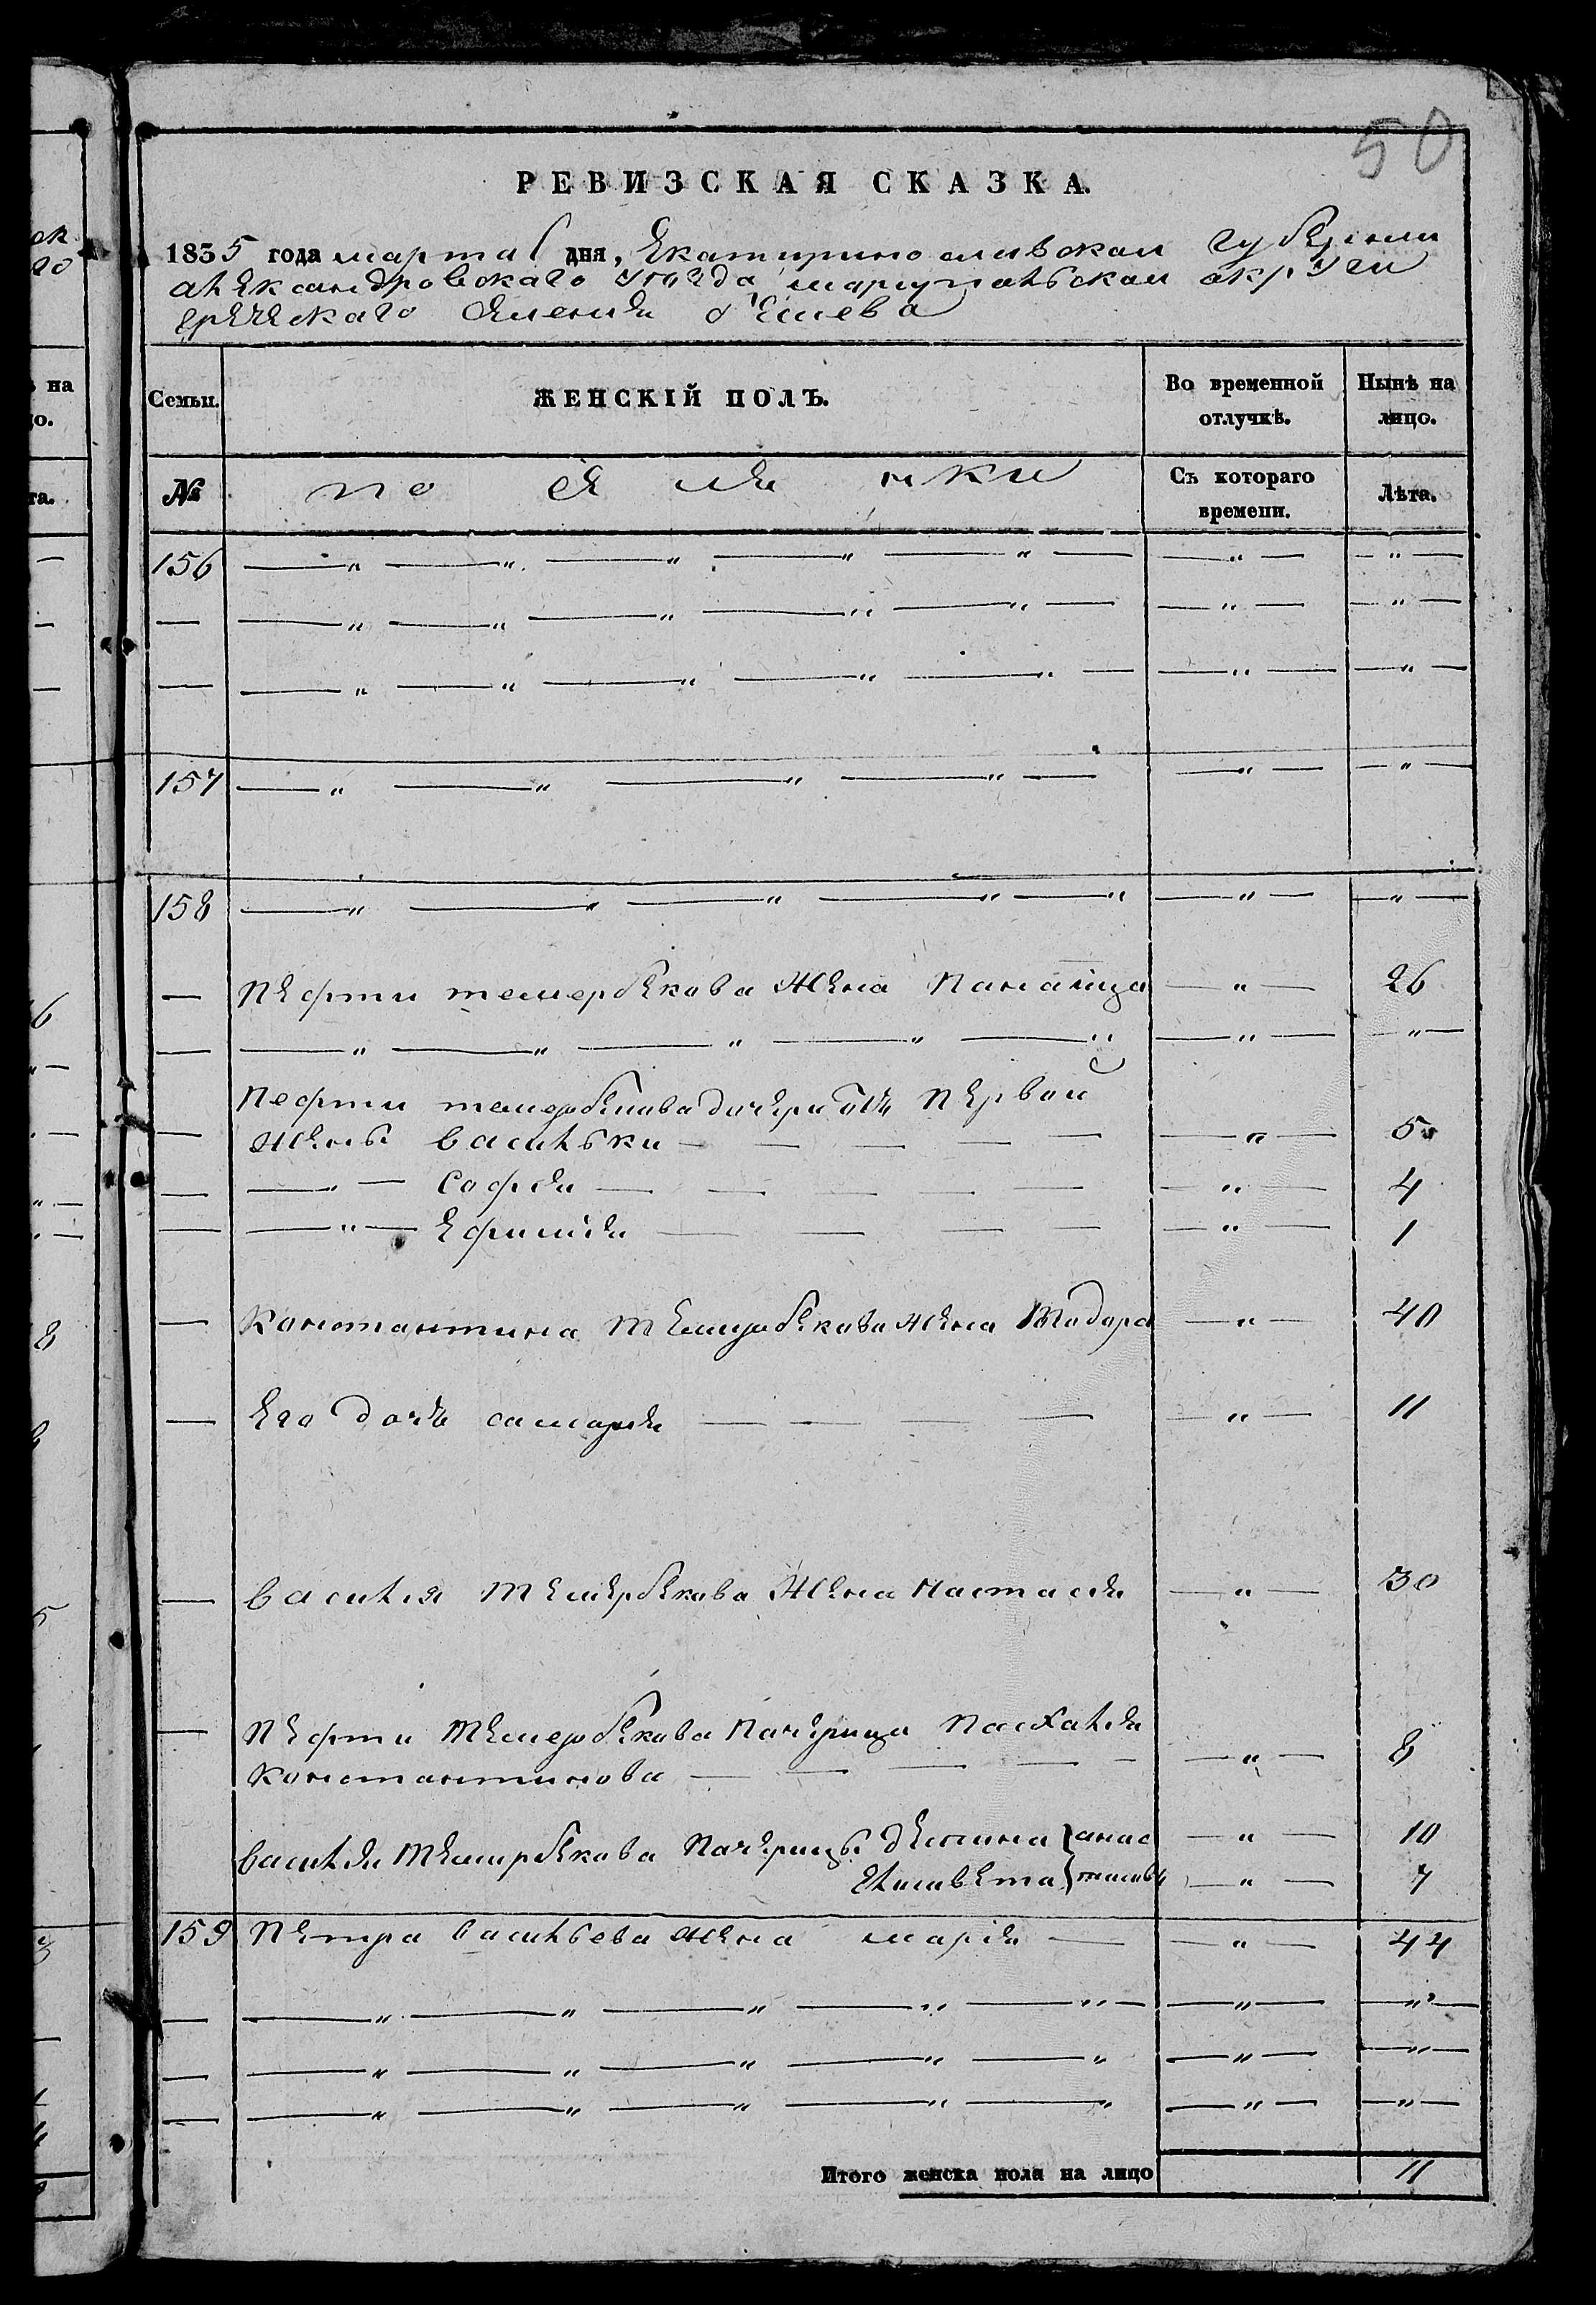 50
РЕВИЗСКАЯ СКАЗКА.
1835 года марта дня, Екатиринославской губернии
александровскаго уезда мариупольской округи
греческаго
Семьи. ЖЕНСКІЙ ПОЛЪ. Во временной отлучкѣ. Нынѣ на лицо.
№ поселянки Съ котораго времени. Лѣта.
156 — „ — „ — „ — „ — „ — — „ — — „ —
— — „ — „ — „ — „ — „ — — „ — — „ —
— — „ — „ — „ — „ — „ — — „ — — „ —
157 — „ — „ — „ — „ — — „ — — „ —
158 — „ — „ — „ — „ — „ — „ — — „ —
— Пефти темербекова жена — „ — 26
— — „ — „ — „ — „ — „ — „ — — „ —
Пефти дочери отъ первой
жены васильки — — — — — „ — 5
— — „ — софия — — — — — — „ — 4
— — „ — ефимия — — — — — „ — 1
— Константина темербекова жена Тодора — „ — 40
— его дочь самария — — — — — „ — 11
— василия темербекова жена настасия — „ — 30
— Пефти темербекова пачерица пасхалия
константинова — — — — — — „ — 8
василия темирбекова пачерицы { — „ — 10
елисавета { — „ — 7
159 петра васильева жена мария — — „ — 44
— — „ — „ — „ — „ — „ — — „ — — „ —
— — „ — „ — „ — „ — „ — „ — — „ —
— — „ — „ — „ — „ — „ — „ — — „ —
Итого женска пола на лицо 11